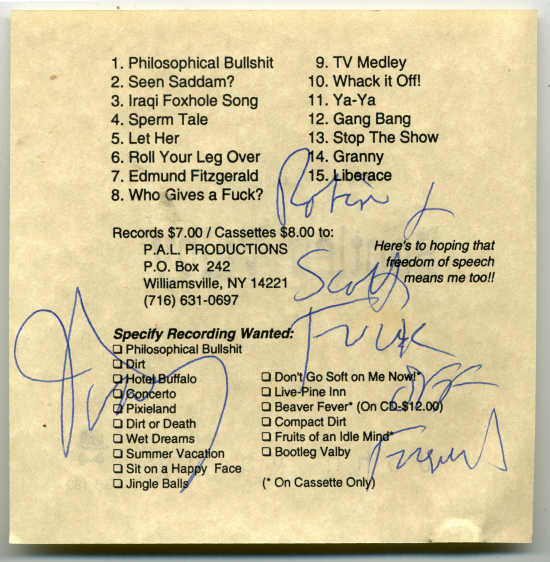 1. Philosophical Bullshit
2. Seen Saddam?
3. Iraqi Foxhole Song
4. Sperm Tale
5. Let Her
6. Roll Your Leg Over
7. Edmund Fitzgerald
8. Who Gives a Fuck?
9. TV Medley
10. Whack it Off!
11. Ya-Ya
12. Gang Bang
13. Stop The Show
14. Granny
15. Liberace
Records $7.00 / Cassettes $8.00 to:
P.A.L. PRODUCTIONS
P.O. Box 242
Williamsville, NY 14221
(716) 631-0697
Here's to hoping that
freedom of speech
means me too!!
Robin &
Scott
Fuck
off
Specify Recording Wanted:
❑ Philosophical Bullshit
❑ Dirt
❑ Hotel Buffalo
❑ Concerto
❑ Pixieland
❑ Dirt or Death
❑ Wet Dreams
❑ Summer Vacation
❑ Sit on a Happy Face
❑ Jingle Balls
❑ Don't Go Soft on Me Now!*
❑ Live-Pine Inn
❑ Beaver Fever* (On CD-$12.00)
❑ Compact Dirt
❑ Fruits of an Idle Mind*
❑ Bootleg Valby
(* On Cassette Only)